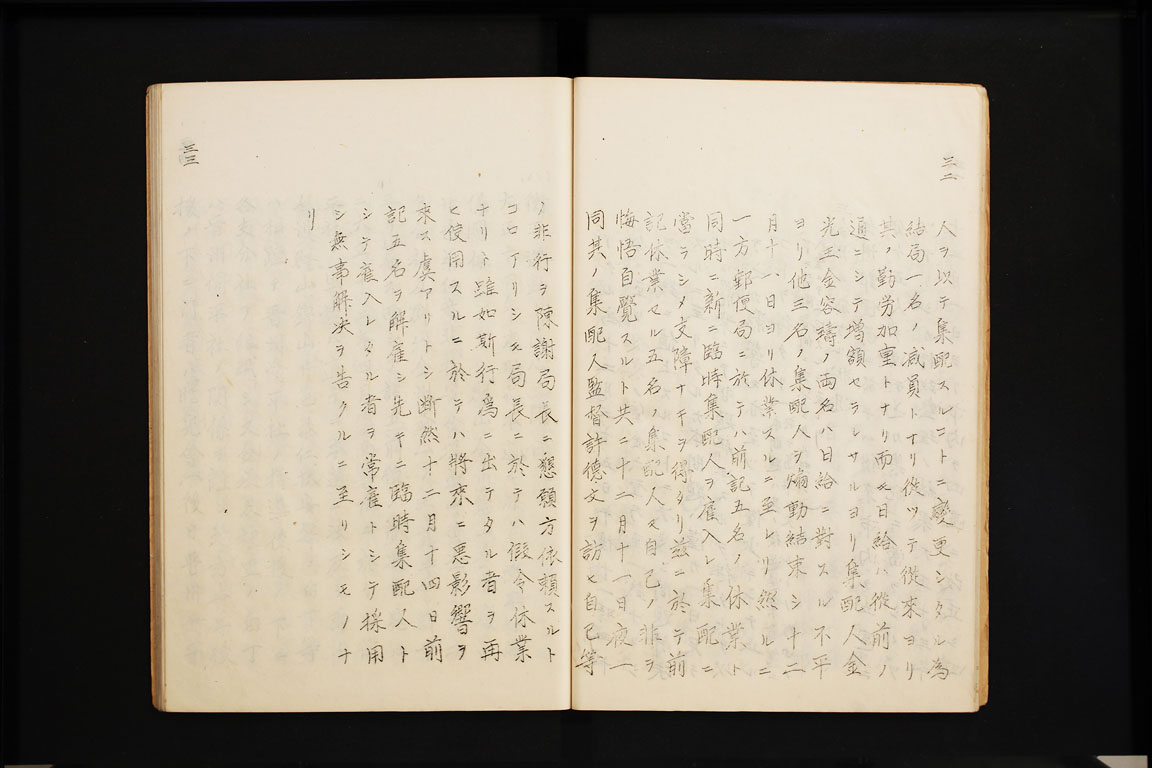 三二
人ヲ以テ集配スルコトニ變更シタル為
結局一名ノ减員トナリ従ツテ從來ヨリ
其ノ勤労加重トナリ而モ日給ハ從前ノ
通ニシテ増額セラレサルヨリ集配人金
光玉金容璹ノ両名ハ日給ニ對スル不平
ヨリ他三名ノ集配人ヲ煽動結束シ十二
月十八日ヨリ休業スルニ至レリ然ルニ
一方郵便局ニ於テハ前記五名ノ休業ト
同時ニ新ニ臨時集配人ヲ雇入レ集配ニ
當ラシメ支障ナキヲ得タリ茲ニ於テ前
記休業セル五名ノ集配人モ自己ノ非ヲ
悔悟自覺スルト共ニ十二月十一日夜一
同其ノ集配人監督許德文ヲ訪ヒ自己等
三三
ノ非行ヲ陳謝局長ニ懇願方依頼スルト
コロアリシモ局長ニ於テハ假令休業
ナリト雖如斯行為ニ出テタル者ヲ再
ヒ使用スルニ於テハ將來ニ悪影響ヲ
來ス虞アリトシ断然十二月十四日前
記五名ヲ解雇シ先キニ臨時集配人ト
シテ雇入レタル者ヲ常雇トシテ採用
シ無事解决ヲ告クルニ至リシモノナ
リ